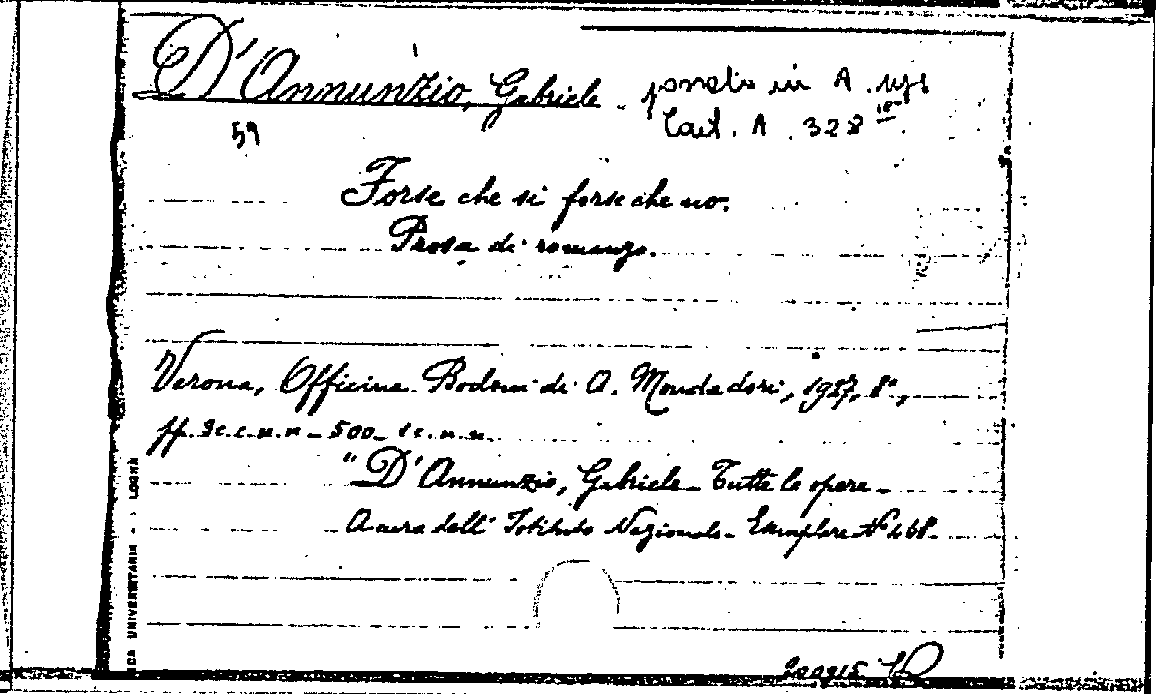 D'Annunzio, Gabriele. in A.
59
Caut. A. 328
Forse che si forse che no.
Prosa di romanzo.
Verona, Officina Bodoni di A. Mondadori, 1927, 8°,
pp. 3 c.c.n.n - 500 - 1 c.n.n.
"D'Annunzio, Gabriele - Tutte le opere -
A cura dell' Istituto Nazionale - Esemplare N° 168 -
UNIVERSITARIA -